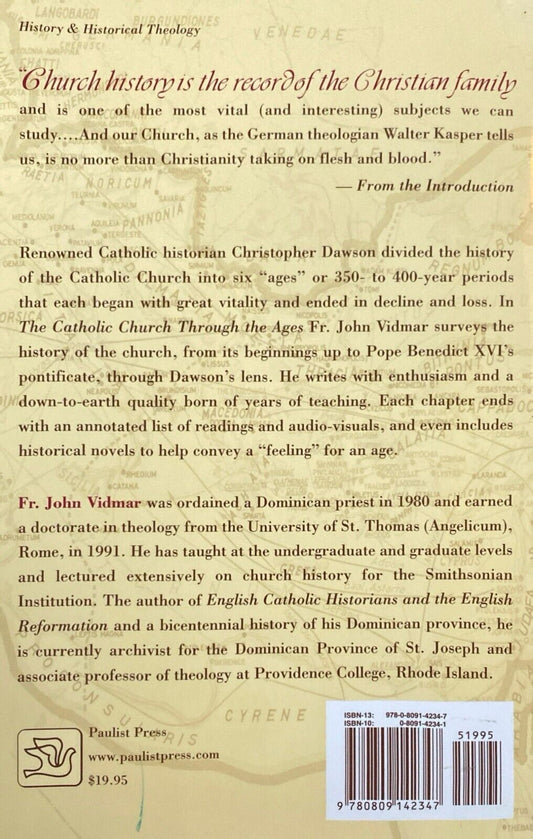 History & Historical Theology
"Church history is the record of the Christian family
and is one of the most vital (and interesting) subjects we can
study....And our Church, as the German theologian Walter Kasper tells
us, is no more than Christianity taking on flesh and blood."
— From the Introduction
Renowned Catholic historian Christopher Dawson divided the history
of the Catholic Church into six "ages" or 350- to 400-year periods
that each began with great vitality and ended in decline and loss. In
The Catholic Church Through the Ages Fr. John Vidmar surveys the
history of the church, from its beginnings up to Pope Benedict XVI's
pontificate, through Dawson's lens. He writes with enthusiasm and a
down-to-earth quality born of years of teaching. Each chapter ends
with an annotated list of readings and audio-visuals, and even includes
historical novels to help convey a "feeling" for an age.
Fr. John Vidmar was ordained a Dominican priest in 1980 and earned
a doctorate in theology from the University of St. Thomas (Angelicum),
Rome, in 1991. He has taught at the undergraduate and graduate levels
and lectured extensively on church history for the Smithsonian
Institution. The author of English Catholic Historians and the English
Reformation and a bicentennial history of his Dominican province, he
is currently archivist for the Dominican Province of St. Joseph and
associate professor of theology at Providence College, Rhode Island.
CYRENE
Paulist Press
www.paulistpress.com
$19.95
ISBN-13: 978-0-8091-4234-7
ISBN-10: 0-8091-4234-1
51995
9 780809 142347
LANGOBARDI
BURGUNDIONES
VENEDAE
NORICUM
PANNONIA
MACEDONIA